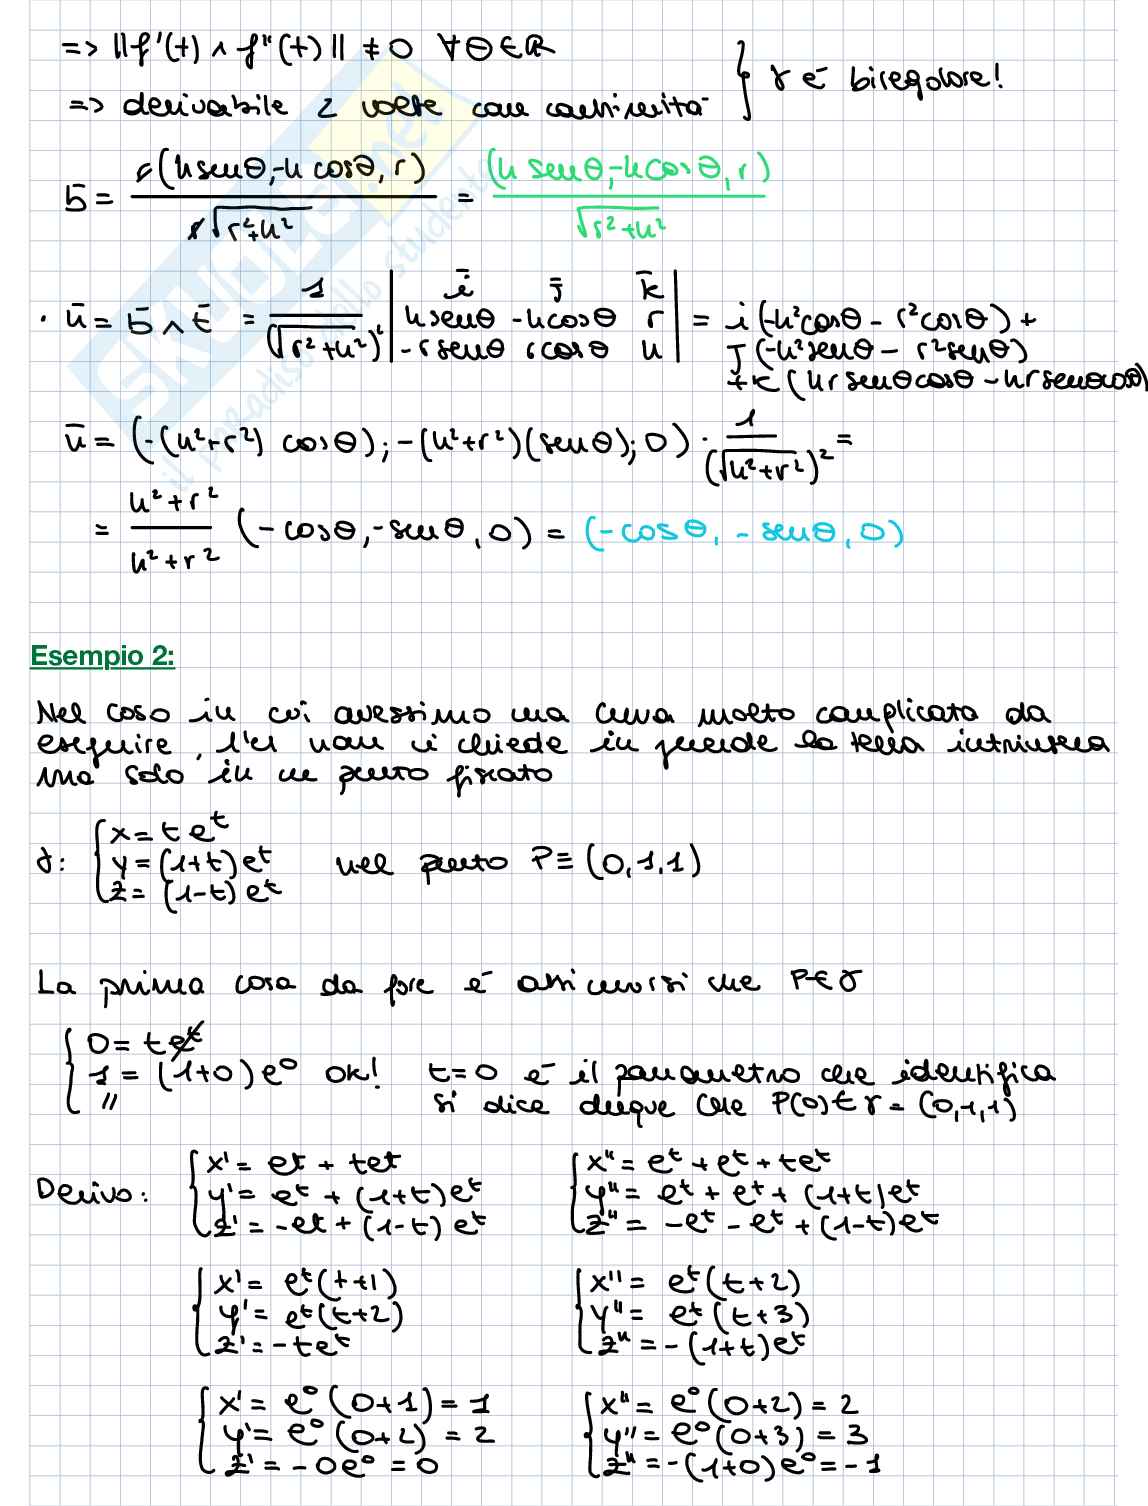 => ||f'(t) ∧ f''(t)|| ≠ 0 ∀θ∈R
=> derivabile 2 volte con continuità } γ è biregolare!
b̄ = r(h senθ, -h cosθ, r) / r√(r²+h²) = (h senθ, -h cosθ, r) / √(r²+h²)
· n̄ = b̄ ∧ t̄ = 1/(√(r²+h²))² | ī j̄ k̄ |
| h senθ -h cosθ r | = i(-h²cosθ - r²cosθ) +
| -r senθ r cosθ h | J(-h²senθ - r²senθ)
+K(hr senθcosθ - hr senθcosθ)
n̄ = (-(h²+r²) cosθ); -(h²+r²)(senθ); 0) · 1/(√(h²+r²))² =
= (h²+r²)/(h²+r²) (-cosθ, -senθ, 0) = (-cosθ, -senθ, 0)
Esempio 2:
Nel caso in cui avessimo una curva molto complicata da
eseguire, l'es non ci chiede in generale la terna intrinseca
ma solo in un punto fissato
γ: { x = t eᵗ
y = (1+t) eᵗ nel punto P ≡ (0,1,1)
z = (1-t) eᵗ
La prima cosa da fare è assicurarsi che P∈γ
{ 0 = t eᵗ
1 = (1+0) e⁰ ok! t=0 è il parametro che identifica
" si dice dunque che P(0)∈γ = (0,1,1)
Derivo: { x' = eᵗ + teᵗ { x'' = eᵗ + eᵗ + teᵗ
y' = eᵗ + (1+t)eᵗ y'' = eᵗ + eᵗ + (1+t)eᵗ
z' = -eᵗ + (1-t) eᵗ z'' = -eᵗ - eᵗ + (1-t)eᵗ
{ x' = eᵗ(t+1) { x'' = eᵗ(t+2)
y' = eᵗ(t+2) y'' = eᵗ(t+3)
z' = -teᵗ z'' = -(1+t)eᵗ
{ x' = e⁰(0+1) = 1 { x'' = e⁰(0+2) = 2
y' = e⁰(0+2) = 2 y'' = e⁰(0+3) = 3
z' = -0e⁰ = 0 z'' = -(1+0)e⁰ = -1
SKUOLA.net
il paradiso dello studente